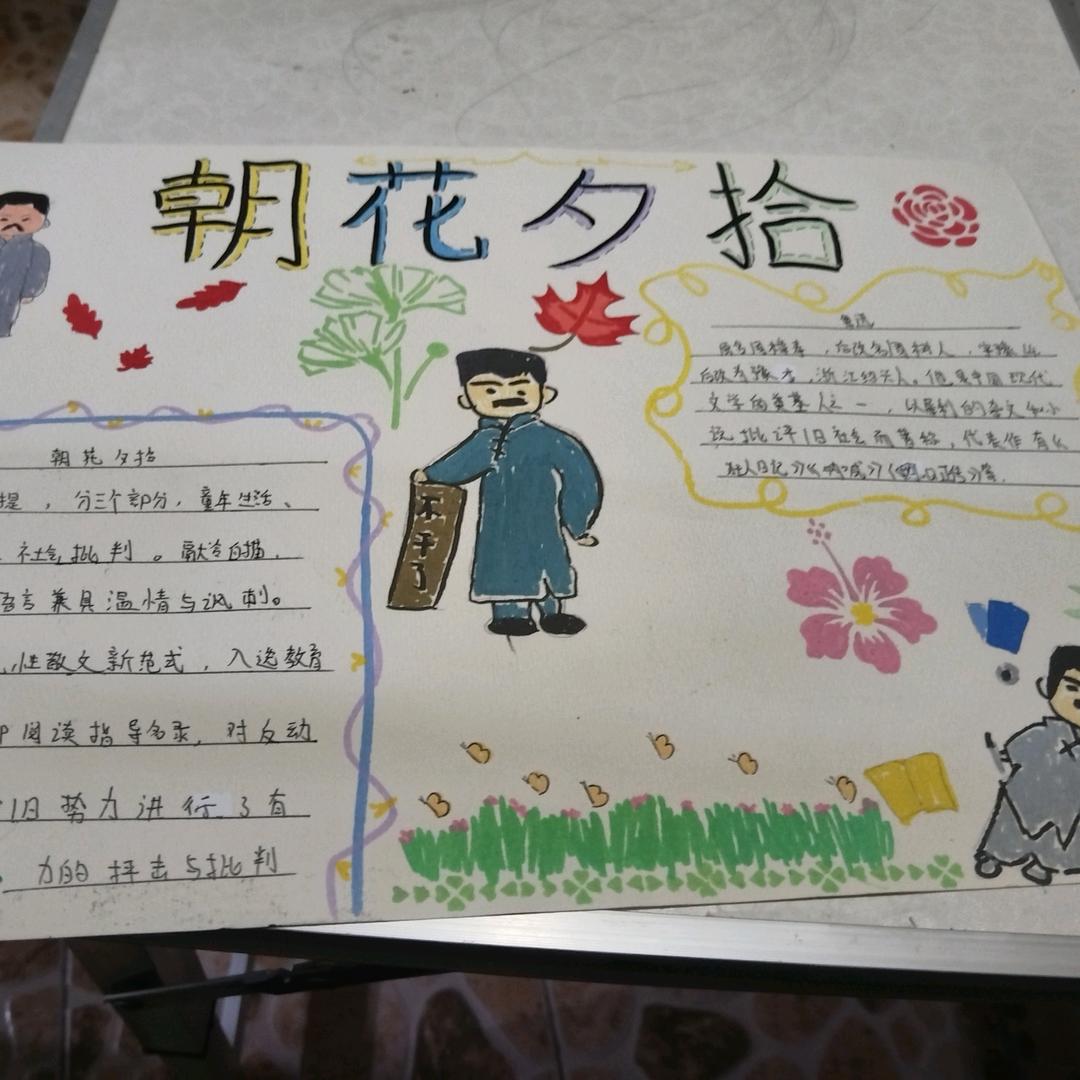 朝花夕拾
鲁迅
原名周樟寿，后改名周树人，字豫山
后改为豫才，浙江绍兴人。他是中国现代
文学的奠基人之一，以犀利的杂文和小
说批评旧社会而著称，代表作有《
狂人日记》《呐喊》《
不干了
朝花夕拾
提，分三个部分，童年生活、
社会批判。融合白描，
语言兼具温情与讽刺。
性散文新范式，入选教育
阅读指导名录，对反动
旧势力进行了有
力的抨击与批判